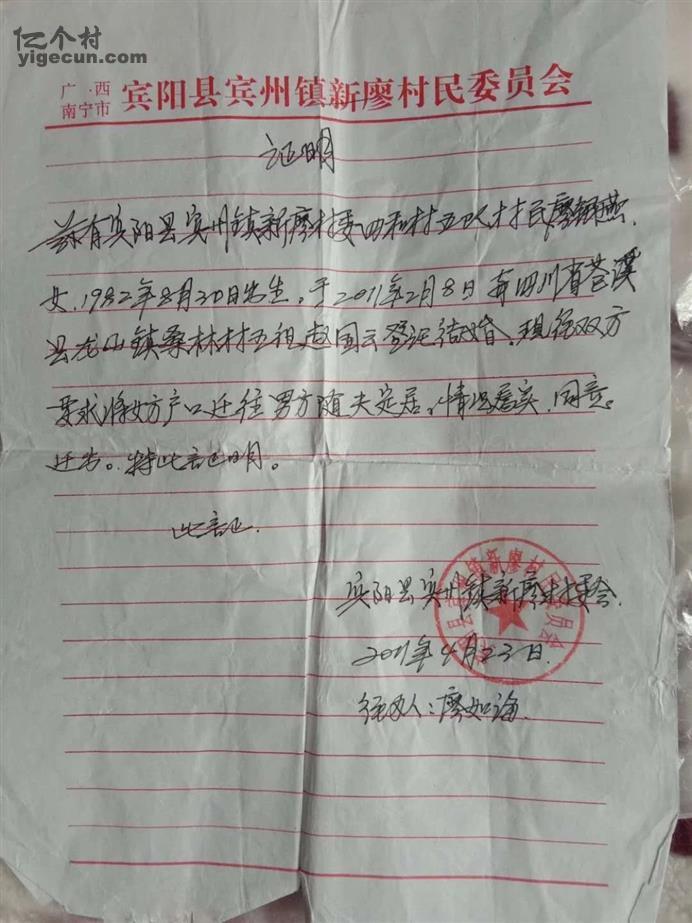 亿个村
yigecun.com
广·西
南宁市
宾阳县宾州镇新廖村民委员会
证明
兹有宾阳县宾州镇新廖村委四和村五队村民廖银燕,
女,1982年8月20日出生,于2011年2月8日与四川省苍溪
县龙山镇桑林村五组赵国云登记结婚。现经双方
要求将女方户口迁往男方随夫定居,情况属实,同意
迁出。特此证明。
此证.
宾阳县宾州镇新廖村委会.
2011年4月23日.
经办人:廖如海.